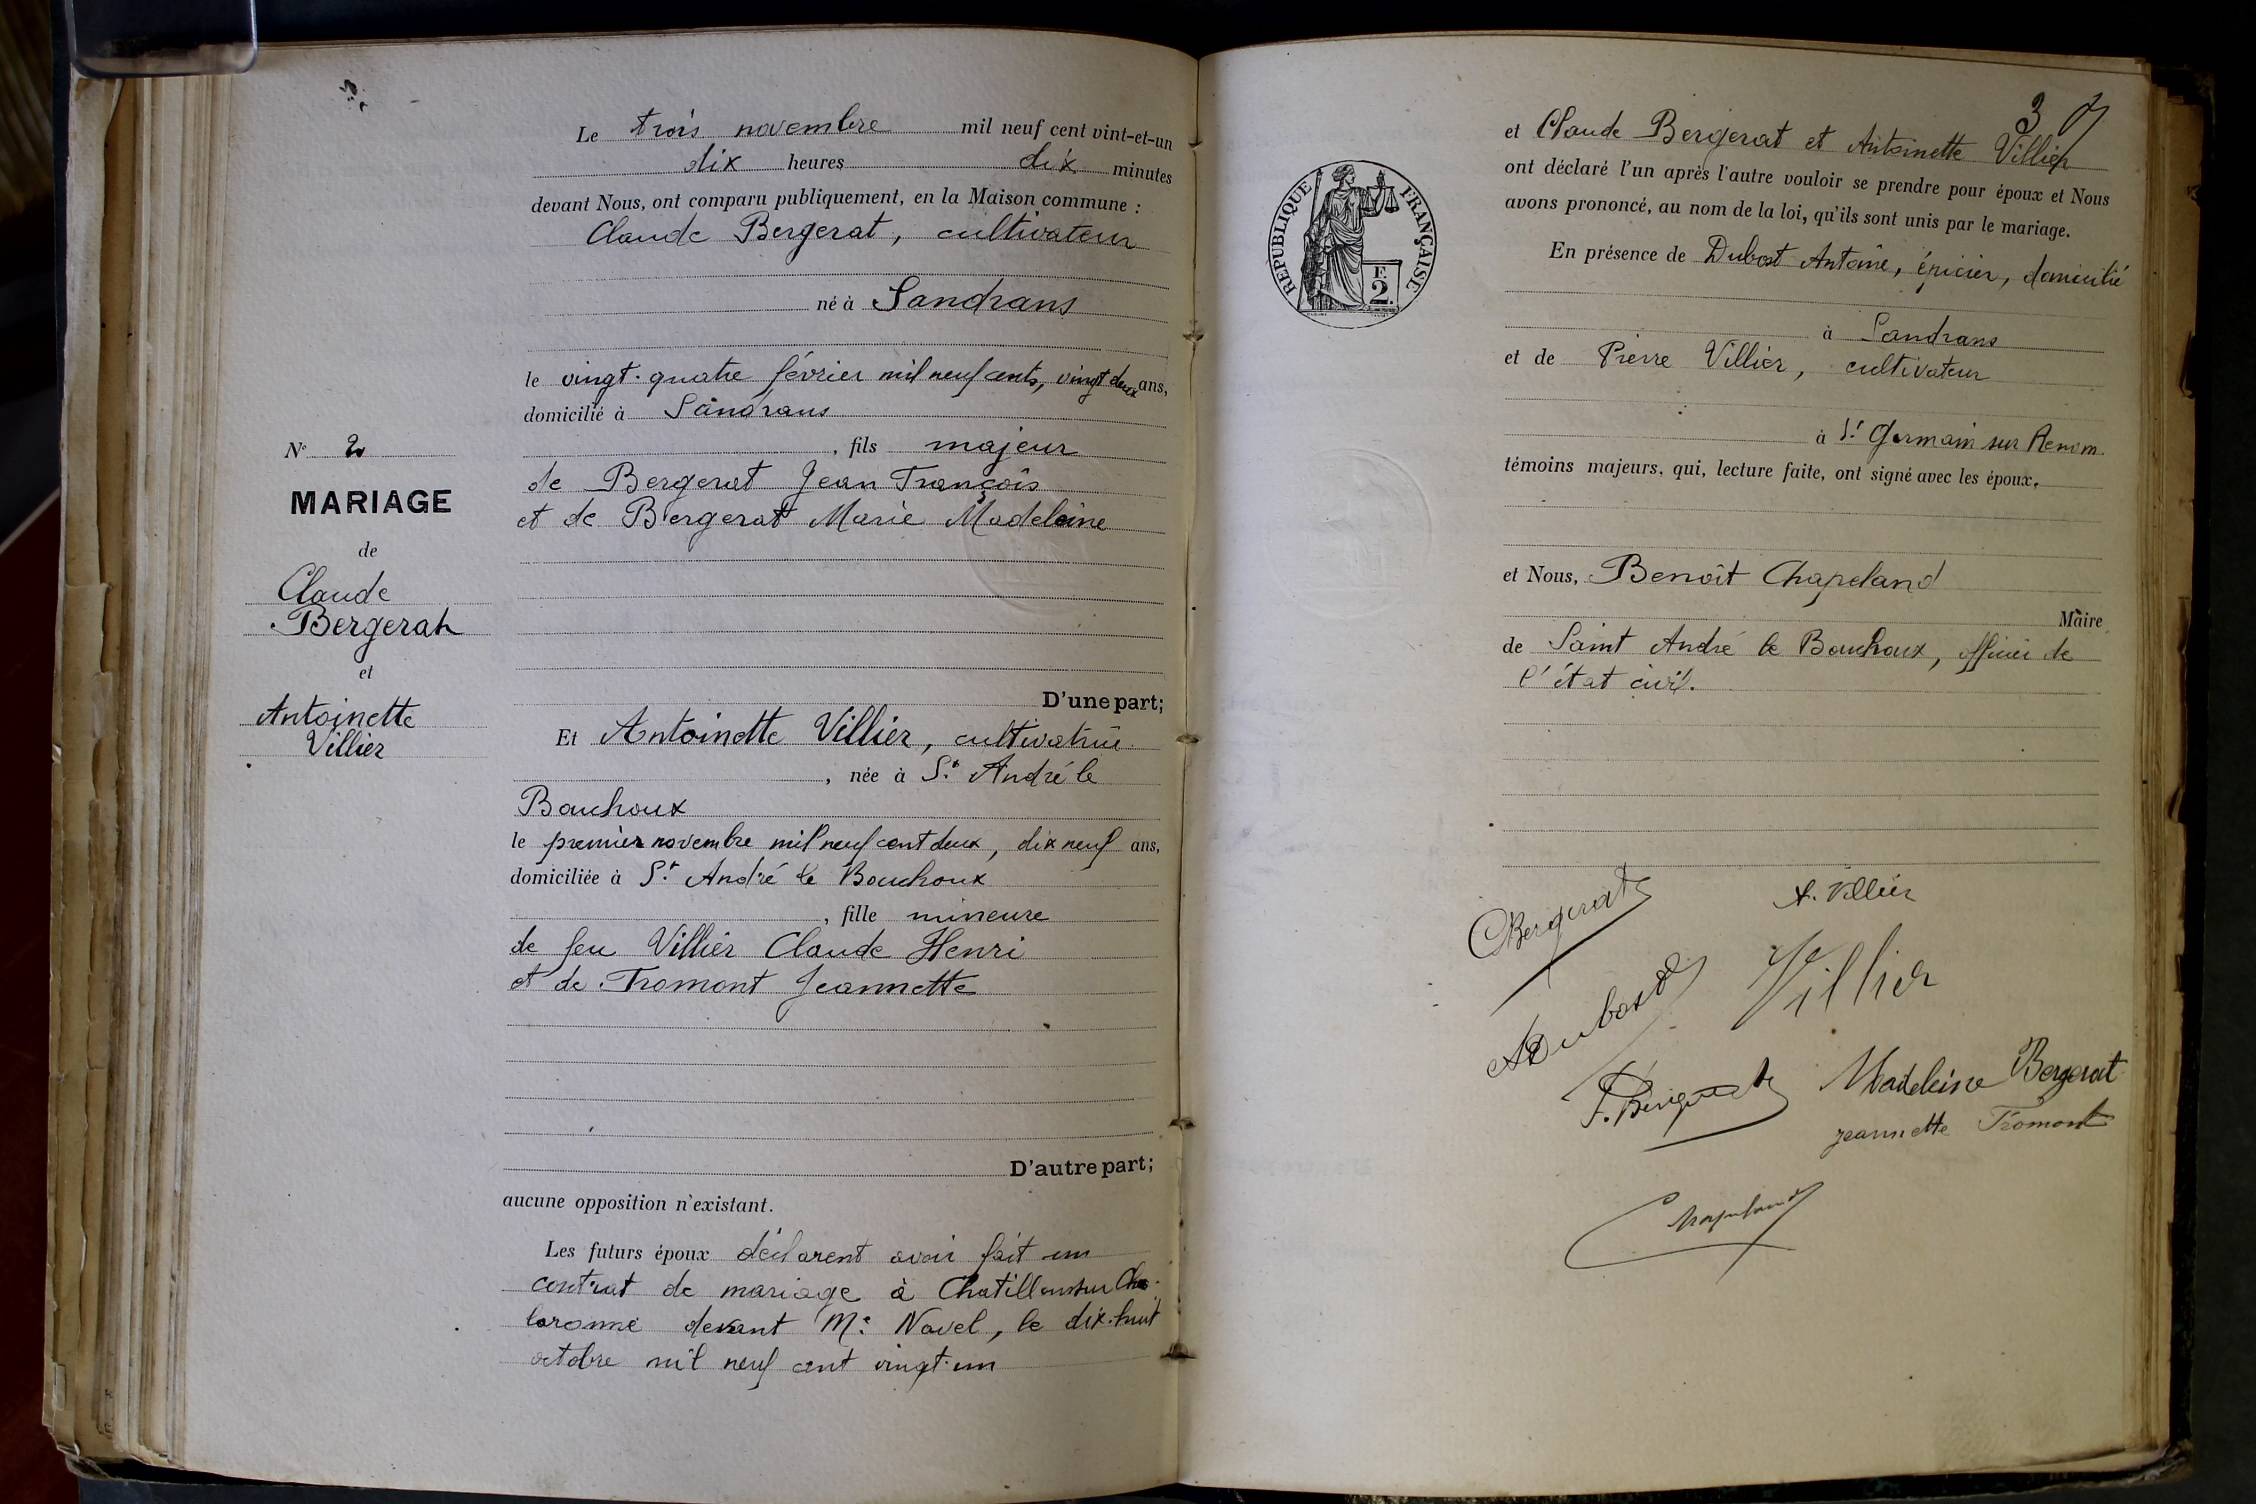 Le trois novembre mil neuf cent vint-et-un
dix heures dix minutes
devant Nous, ont comparu publiquement, en la Maison commune :
Claude Bergerat, cultivateur
né à Sandrans
le vingt-quatre février mil neuf cents, vingt deux ans,
domicilié à Sandrans
, fils majeur
de Bergerat Jean François
et de Bergerat Marie Madeleine
D'une part;
Et Antoinette Villier, cultivatrice
, née à St André le
Bouchoux
le premier novembre mil neuf cent deux, dix neuf ans,
domiciliée à St André le Bouchoux
, fille mineure
de feu Villier Claude Henri
et de Tromont Jeannette
D'autre part;
aucune opposition n'existant.
Les futurs époux déclarent avoir fait un
contrat de mariage à Chatillon sur Cha-
laronne devant Me Navel, le dix-huit
octobre mil neuf cent vingt-un
No 2
MARIAGE
de
Claude
Bergerat
et
Antoinette
Villier
3
et Claude Bergerat et Antoinette Villier
ont déclaré l'un après l'autre vouloir se prendre pour époux et Nous
avons prononcé, au nom de la loi, qu'ils sont unis par le mariage.
En présence de Dubost Antoine, épicier, domicilié
à Sandrans
et de Pierre Villier, cultivateur
à St Germain sur Renom
témoins majeurs, qui, lecture faite, ont signé avec les époux,
et Nous, Benoît Chapeland
Maire
de Saint André le Bouchoux, officier de
l'état civil.
RÉPUBLIQUE FRANÇAISE
F.
2.
CBergerat
A. Villier
ADubost
Villier
F. Bergerat
Madeleine Bergerat
jeannette Tromont
Chapeland